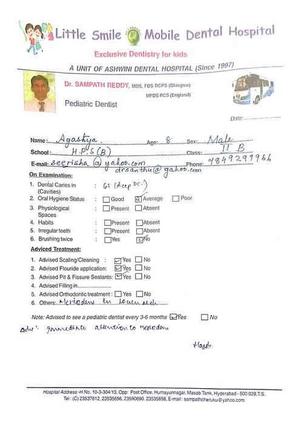 Little Smile Mobile Dental Hospital
Exclusive Dentistry for kids
A UNIT OF ASHWINI DENTAL HOSPITAL (Since 1997)
Dr. SAMPATH REDDY, MDS, FDS DCPS (Glasgow)
MFDS RCS (England)
Pediatric Dentist
Date:
Name: Agastya Age: 8 Sex: Male
School: H.P.S (B) Class: II B
E-mail: @ yahoo.com Phone: 9849299966
@ yahoo.com
On Examination:
1. Dental Caries in (Cavities) :
2. Oral Hygiene Status : Good Average Poor
3. Physiological Spaces : Present Absent
4. Habits : Present Absent
5. Irregular teeth : Present Absent
6. Brushing twice : Yes No
Adviced Treatment:
1. Advised Scaling/Cleaning : Yes No
2. Advised Flouride application: Yes No
3. Advised Pit & Fissure Sealants: Yes No
4. Advised Filling in
5. Advised Orthodontic treatment : Yes No
6. Others:
Note: Advised to see a pediatric dentist every 3-6 months Yes No
Adv: immediate attention to
Hospital Address -H.No. 10-3-304/10, Opp: Post Office, Humayunnagar, Masab Tank, Hyderabad - 500 028.T.S.